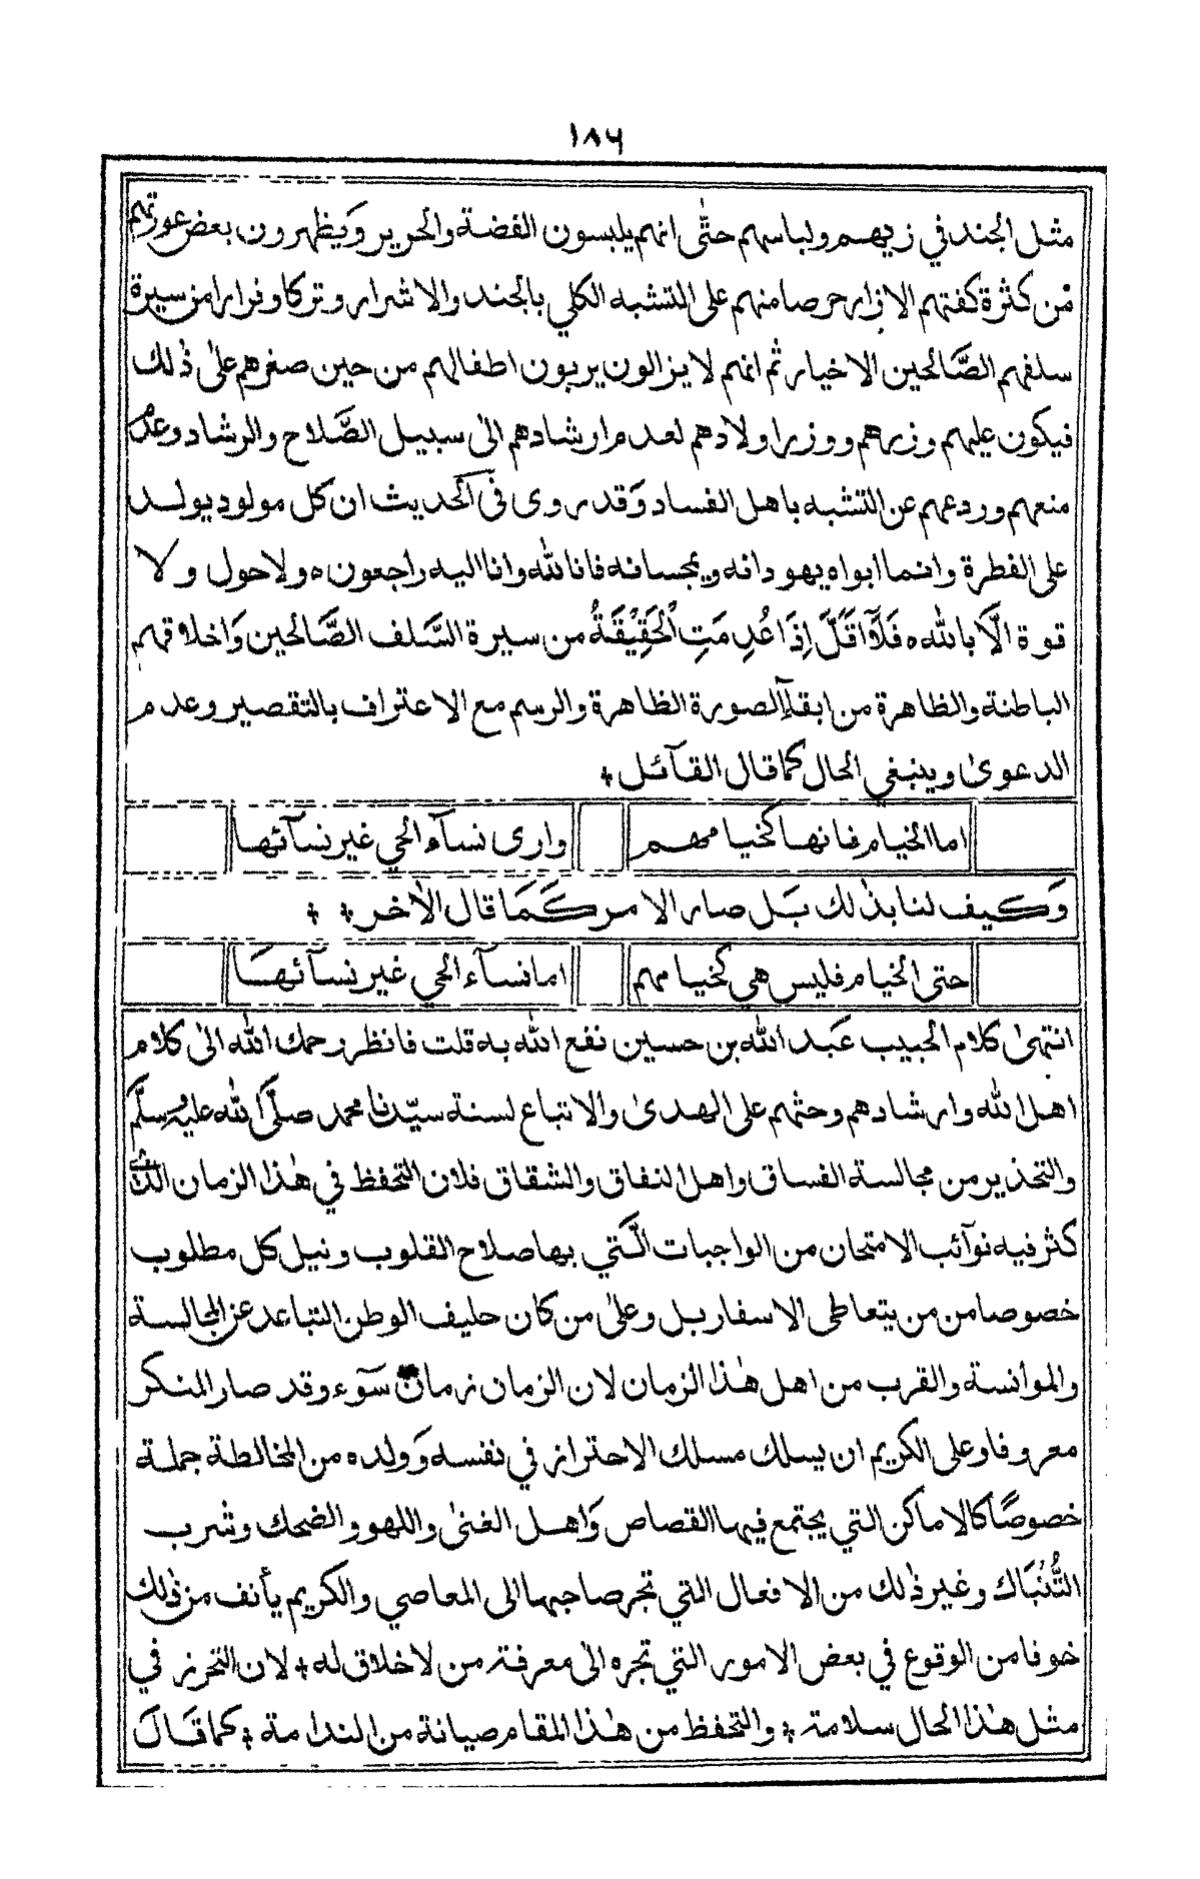 ١٨٦
مثل الجند في زيهم ولباسهم حتّى انهم يلبسون الفضة والحرير وَيظهرون بعض عورتهم
من كثرة كفتهم الازار حرصا منهم على التشبه الكلي بالجند والاشرار وتركا وفرارا من سيرة
سلفهم الصَّالحين الاخيار ثم انهم لا يزالون يربون اطفالهم من حين صغرهم على ذٰلك
فيكون عليهم وزرهم ووزر اولادهم لعدم ارشادهم الى سبيل الصَّلاح والرشاد وعدم
منعهم وردعهم عن التشبه باهل الفساد وَقد روى في الحديث ان كل مولود يولد
على الفطرة وانما ابواه يهودانه ويمجسانه فانا لله وانا اليه راجعون ه ولا حول ولا
قوة الَّا بالله ه فَلَآ اَقَلَّ اِذَا عُدِمَتِ الْحَقِيْقَةُ من سيرة السَّلف الصَّالحين وَاخلاقهم
الباطنة والظاهرة من ابقآء الصورة الظاهرة والرسم مع الاعتراف بالتقصير وعدم
الدعوىٰ وينبغي الحال كما قال القآئل ٭
اما الخيام فانها كخيامهم واری نسآء الحي غير نسآئها
وَكيف لنا بذٰلك بَل صار الامر كَمَا قال الاٰخر ٭ ٭
حتى الخيام فليس هي كخيامهم اما نسآء الحي غير نسآئهَا
انتهىٰ كلام الحبيب عَبد الله بن حسين نفع الله به قلت فانظر رحمك الله الىٰ كلام
اهل الله وارشادهم وحثهم على الهدىٰ والاتباع لسنة سيّدنا محمد صلَّى الله عليه وسلَّم
والتحذير من مجالسة الفساق واهل النفاق والشقاق فلان التحفظ في هٰذا الزمان الذي
كثر فيه نوآئب الامتحان من الواجبات الَّتي بها صلاح القلوب ونيل كل مطلوب
خصوصا من من يتعاطى الاسفار بل وعلىٰ من كان حليف الوطن التباعد عن المجالسة
والموانسة والقرب من اهل هٰذا الزمان لان الزمان زمان سوٓء وقد صار المنكر
معروفا وعلى الكريم ان يسلك مسلك الاحتراز في نفسه وَولده من المخالطة جملة
خصوصًا كالاماكن التي يجتمع فيها القصاص وَاهل الغنىٰ واللهو والضحك وشرب
التُّنْبَاك وغير ذٰلك من الافعال التي تجر صاحبها الى المعاصي والكريم يأنف من ذٰلك
خوفا من الوقوع في بعض الامور التي تجره الىٰ معرفة من لا خلاق له ٭ لان التحرز في
مثل هٰذا الحال سلامة ٭ والتحفظ من هٰذا المقام صيانة من الندامة ٭ كما قَالَ